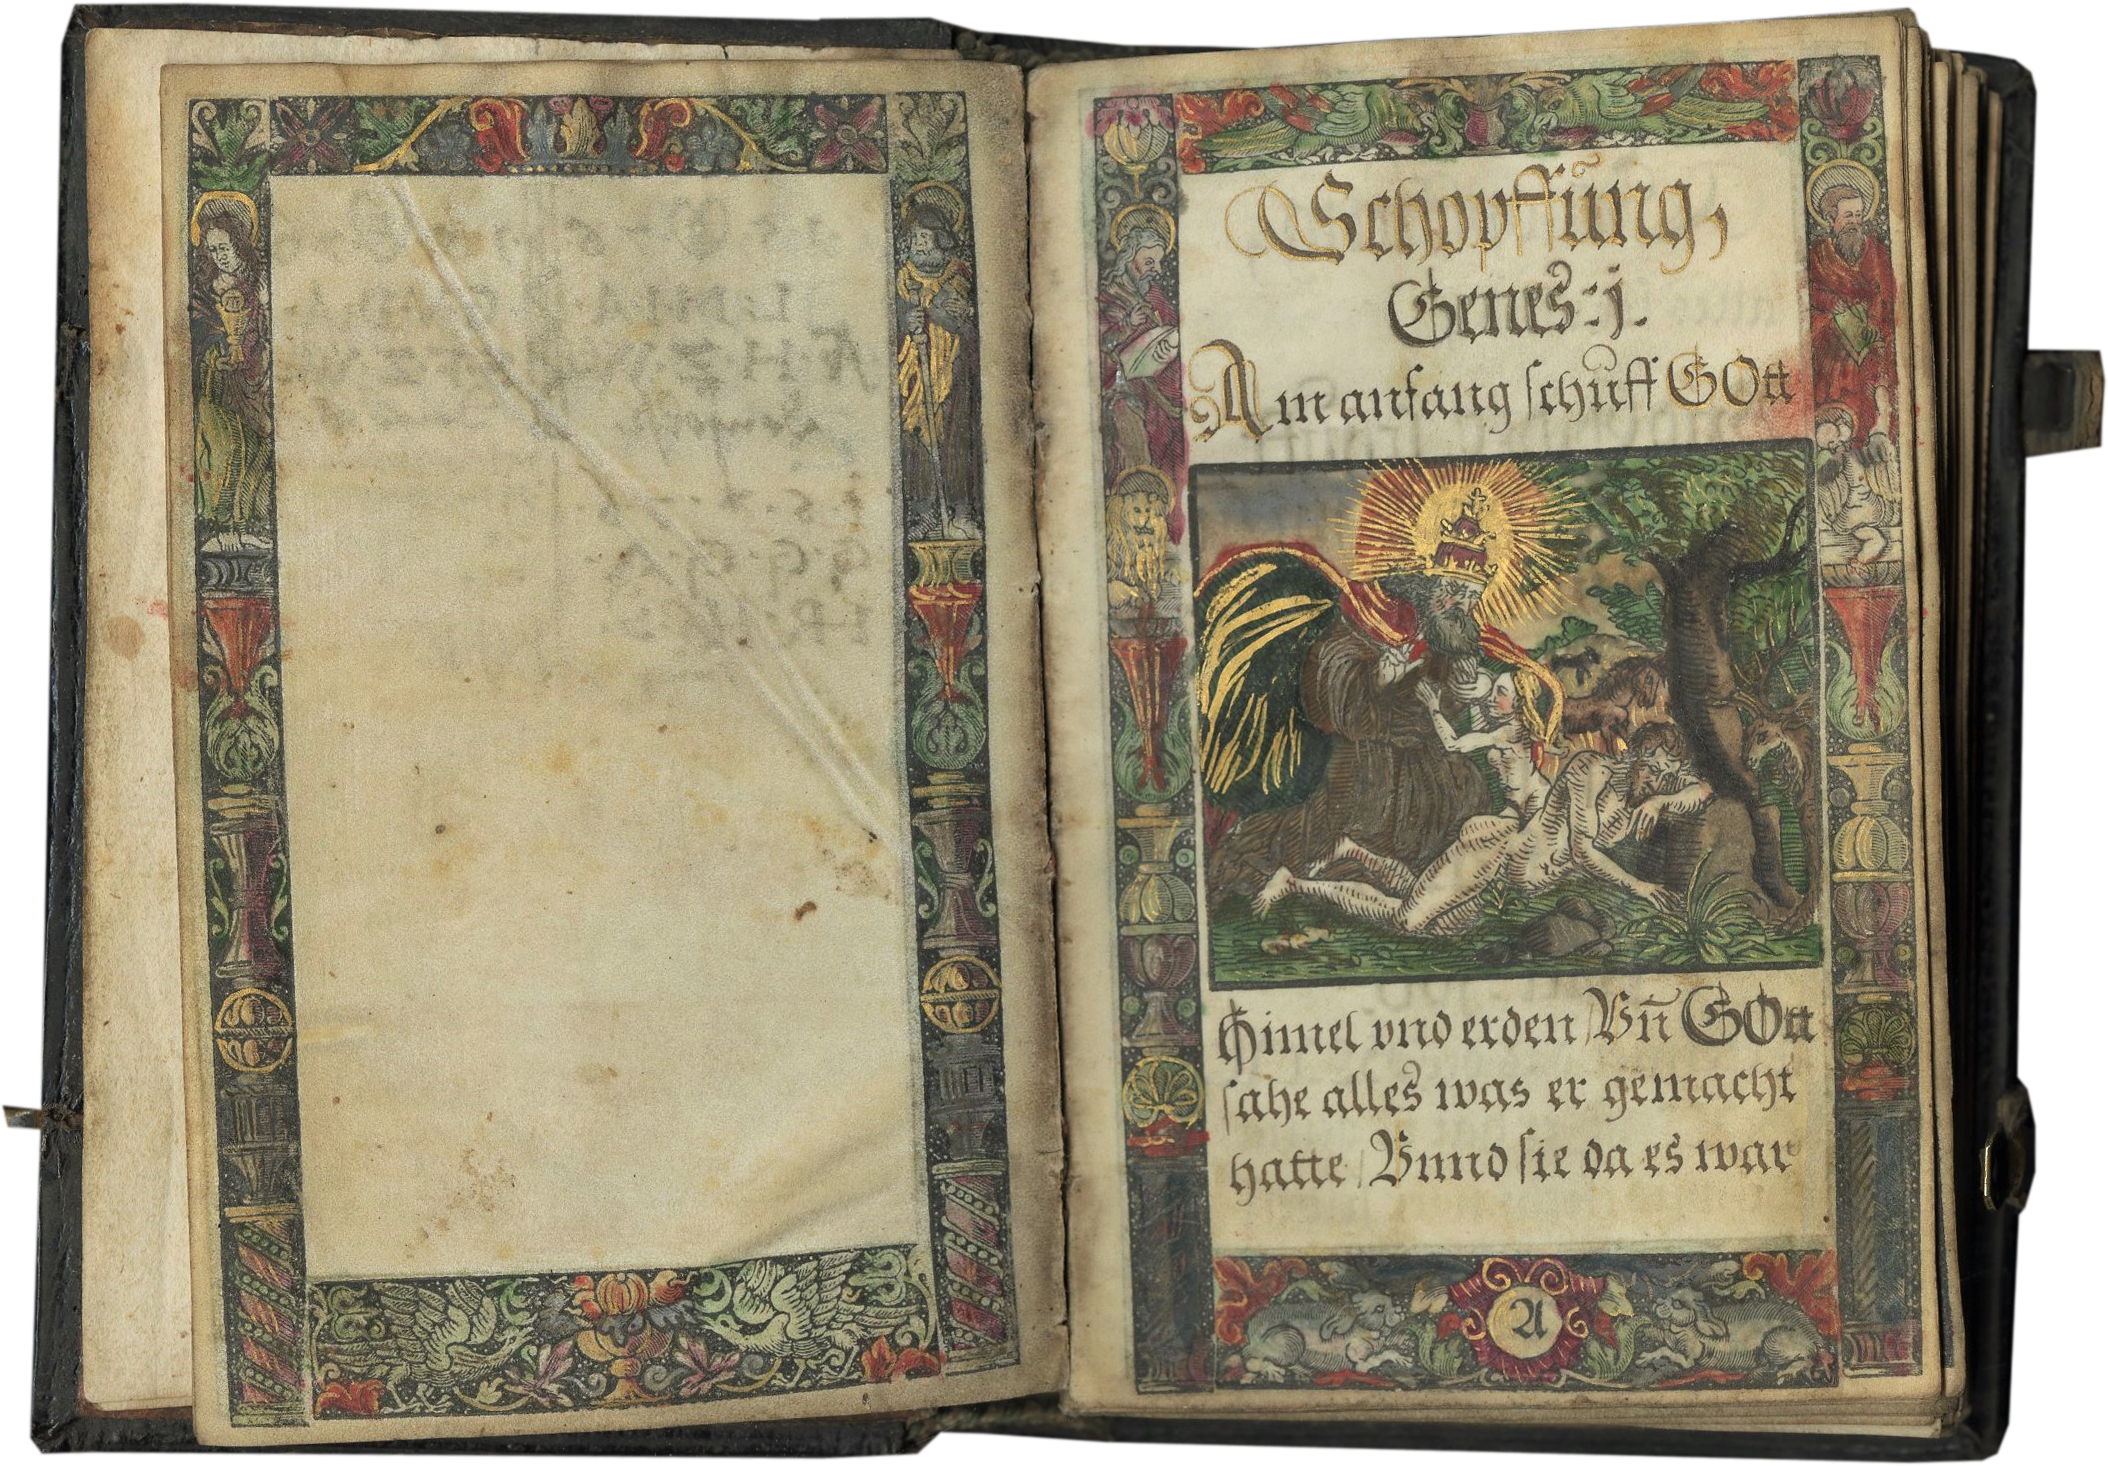 Schöpffūng,
Genes: j.
Am anfang schůff GOtt
Himel vnd erden / Vn̄ GOtt
sahe alles was er gemacht
hatte / Vnnd sie da es war
A